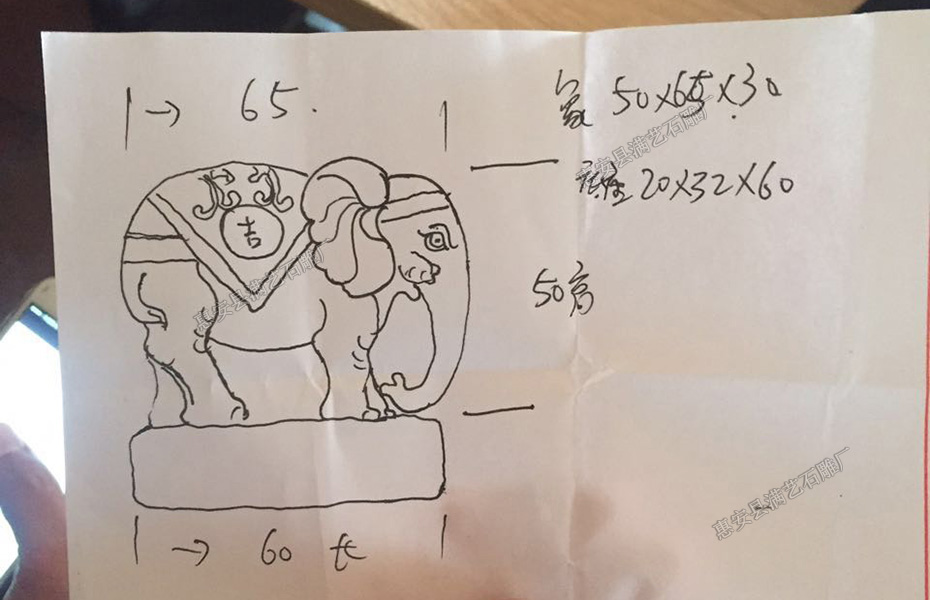 65.
象 50×65×30
底座 20×32×60
吉
50高
60 长
惠安县满艺石雕厂
惠安县满艺石雕厂
惠安县满艺石雕厂